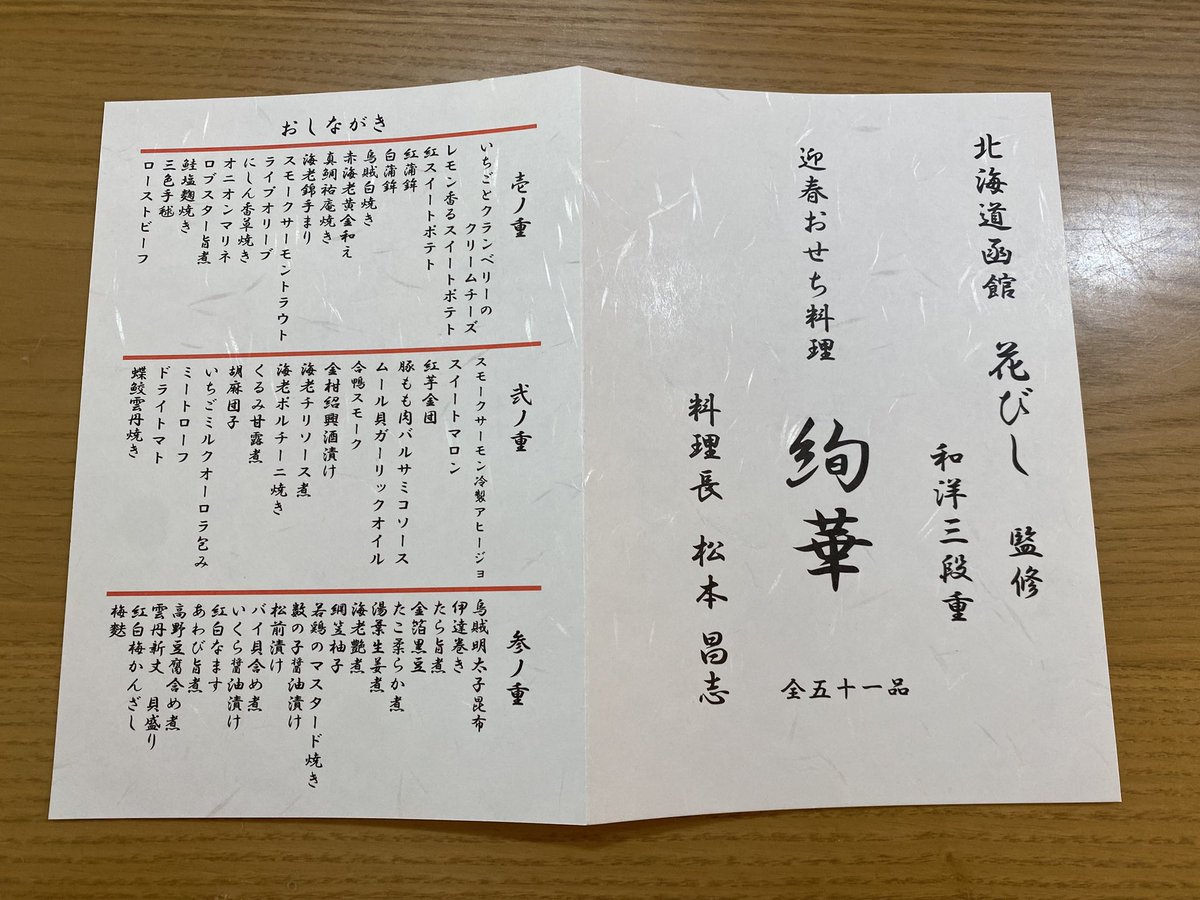 北海道函館 花びし 監修
和洋三段重
迎春おせち料理 絢華
全五十一品
料理長 松本 昌志
おしながき
壱ノ重
いちごとクランベリーの
クリームチーズ
レモン香るスイートポテト
紅スイートポテト
紅蒲鉾
白蒲鉾
烏賊白焼き
赤海老黄金和え
真鯛祐庵焼き
海老錦手まり
スモークサーモントラウト
ライプオリーブ
にしん香草焼き
オニオンマリネ
ロブスター旨煮
鮭塩麹焼き
三色手毬
ローストビーフ
弐ノ重
スモークサーモン冷製アヒージョ
スイートマロン
紅芋金団
豚もも肉バルサミコソース
ムール貝ガーリックオイル
合鴨スモーク
金柑紹興酒漬け
海老チリソース煮
海老ポルチーニ焼き
くるみ甘露煮
胡麻団子
いちごミルクオーロラ包み
ミートローフ
ドライトマト
蝶鮫雲丹焼き
参ノ重
烏賊明太子昆布
伊達巻き
たら旨煮
金箔黒豆
たこ柔らか煮
湯葉生姜煮
海老艶煮
網笠柚子
若鶏のマスタード焼き
数の子醤油漬け
松前漬け
バイ貝含め煮
いくら醤油漬け
紅白なます
あわび旨煮
高野豆腐含め煮
雲丹新丈 貝盛り
紅白梅かんざし
梅麩